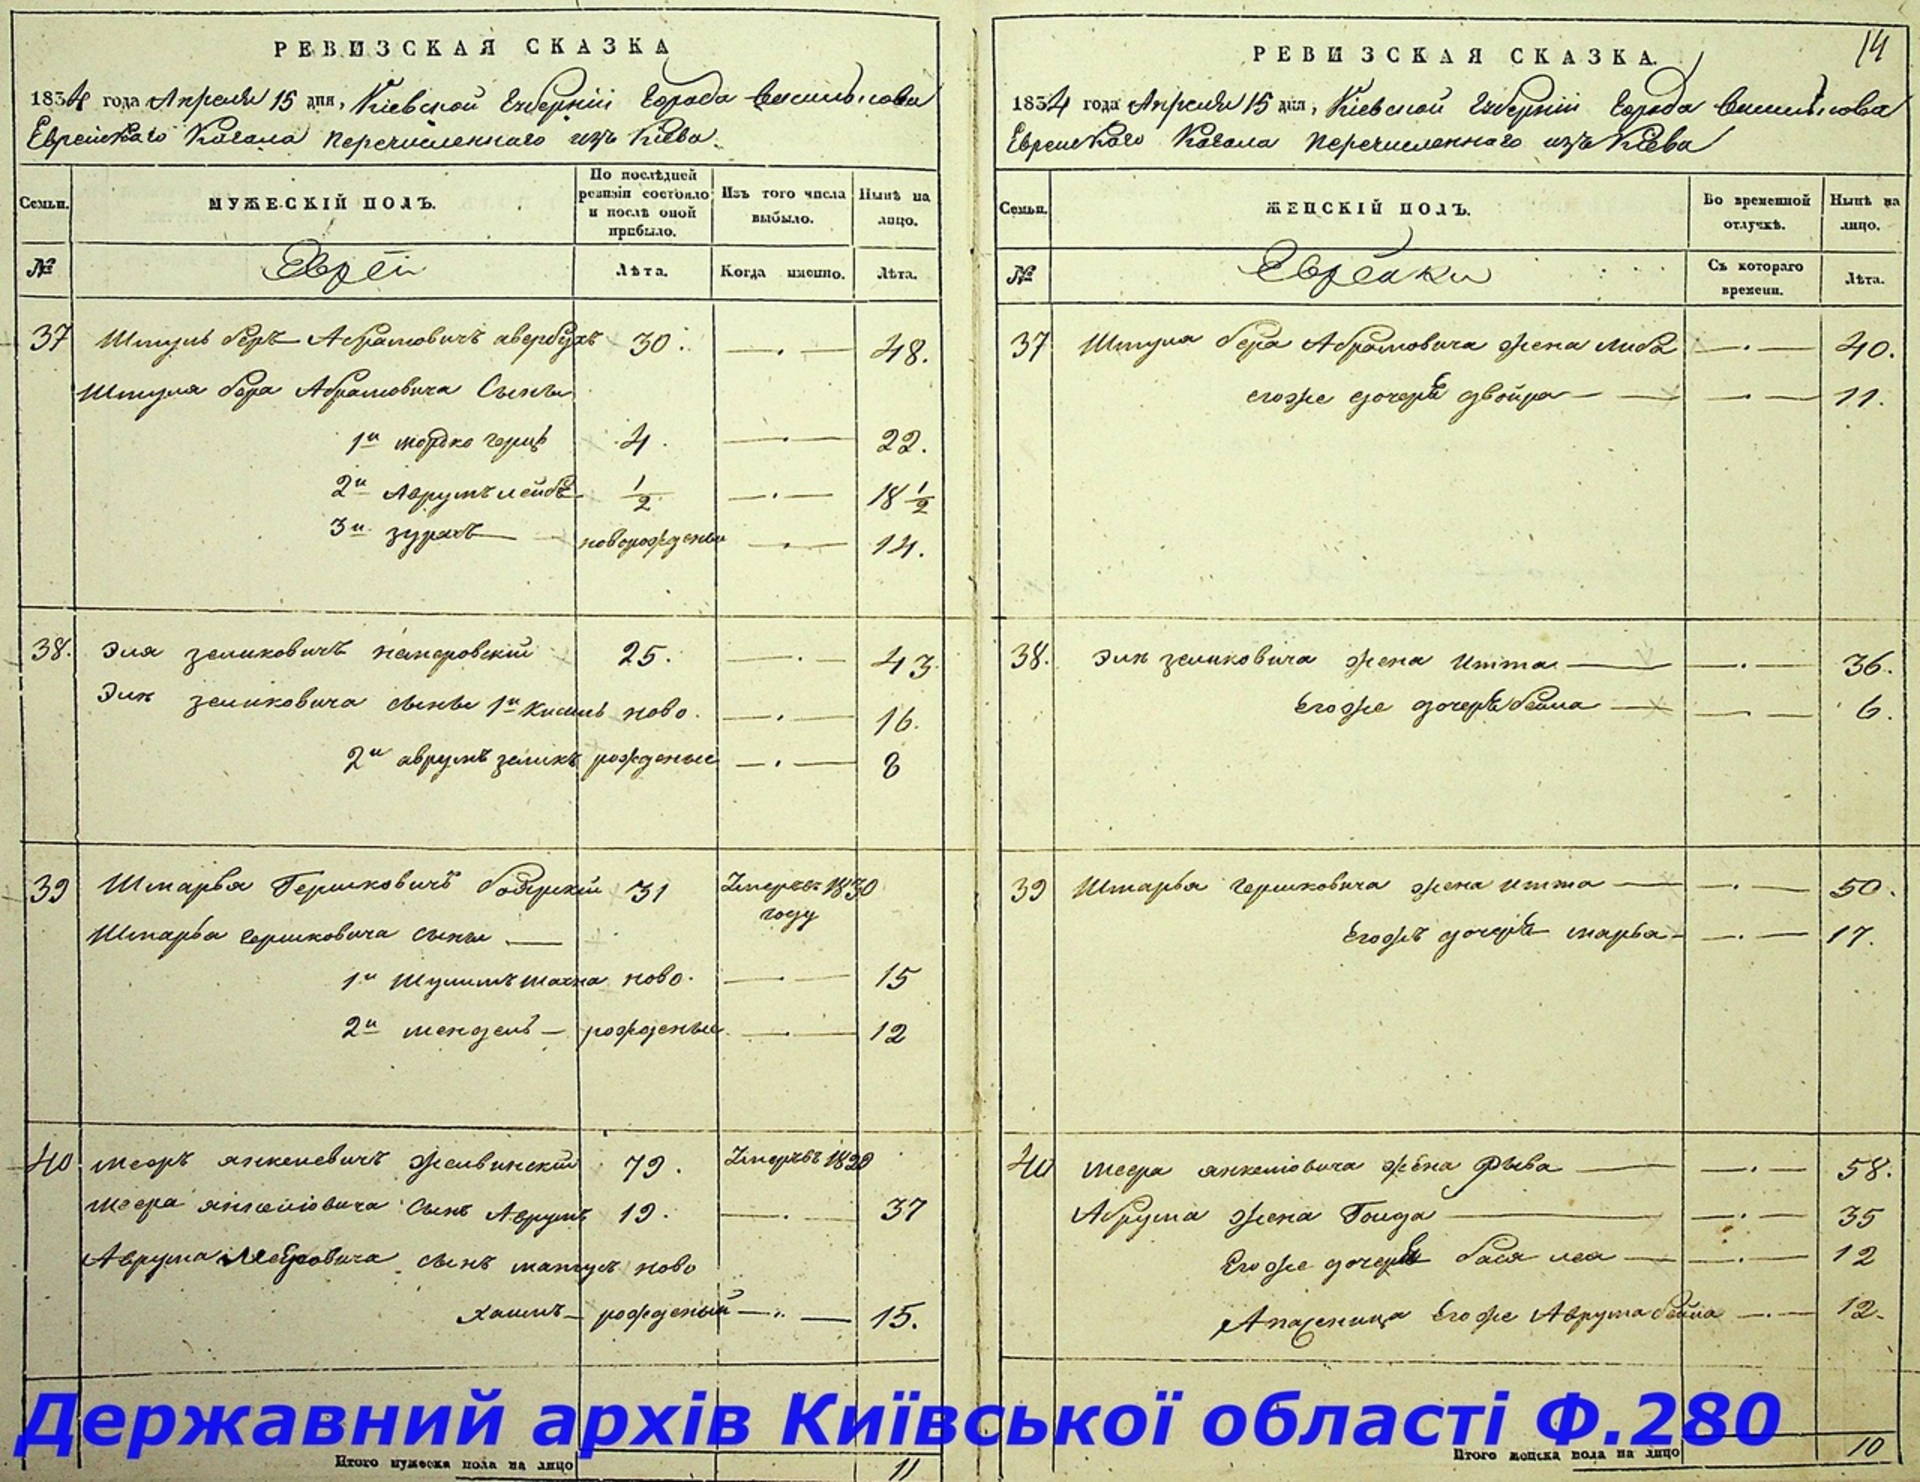 РЕВИЗСКАЯ СКАЗКА
1834 года Апреля 15 дня, Кіевской Губерніи Города Василькова
Еврейскаго Кагала перечисленнаго изъ Кіева.
Семьи.
МУЖЕСКІЙ ПОЛЪ.
По послѣдней ревизіи состояло и послѣ оной прибыло.
Изъ того числа выбыло.
Нынѣ на лицо.
№
Евреи
Лѣта.
Когда именно.
Лѣта.
37 Шмуль беръ Абрамовичъ авербухъ 30. 48.
Шмуля бера Абрамовича Сыны
1й мордко герцъ 4. 22.
2й Аврумъ лейбъ 1/2 18 1/2
3й зурахъ новорожденый 14.
38. Эля зеликовичъ немеровскій 25. 43.
Эли зеликовича сыны 1й Кисиль ново. 16.
2й аврумъ зеликъ рожденые 8
39 Шмарья Гершковичъ боярскій 31 Умеръ въ 1830 году
Шмарья гершковича сыны
1й Шулимъ махна ново. 15
2й мендель рожденые 12
40 мееръ янкелевичъ 79. Умеръ въ 1820
меера янкеліовича Сынъ Аврумъ 19. 37
Аврума Меѣровича сынъ ново
хаимъ рожденый 15.
Итого мужеска пола на лицо 11
14
РЕВИЗСКАЯ СКАЗКА.
1834 года Апреля 15 дня, Кіевской Губерніи Города Василькова
Еврейскаго Кагала перечисленнаго изъ Кіева
Семьи.
ЖЕНСКІЙ ПОЛЪ.
Во временной отлучкѣ.
Нынѣ на лицо.
№
Еврейки
Съ котораго времени.
Лѣта.
37 Шмуля бера Абрамовича жена либа 40.
егоже дочерь двойра 11.
38. Эли зеликовича жена итта 36.
Егоже дочерь бейла 6.
39 Шмарья гершковича жена итта 50.
Егожъ дочерь марья 17.
40 меера янкеліовича жена Рыва 58.
Абрума жена Голда 35
Егоже дочерь бася леа 12
егоже Аврума бейла 12.
Итого женска пола на лицо 10
Державний архів Київської області Ф.280